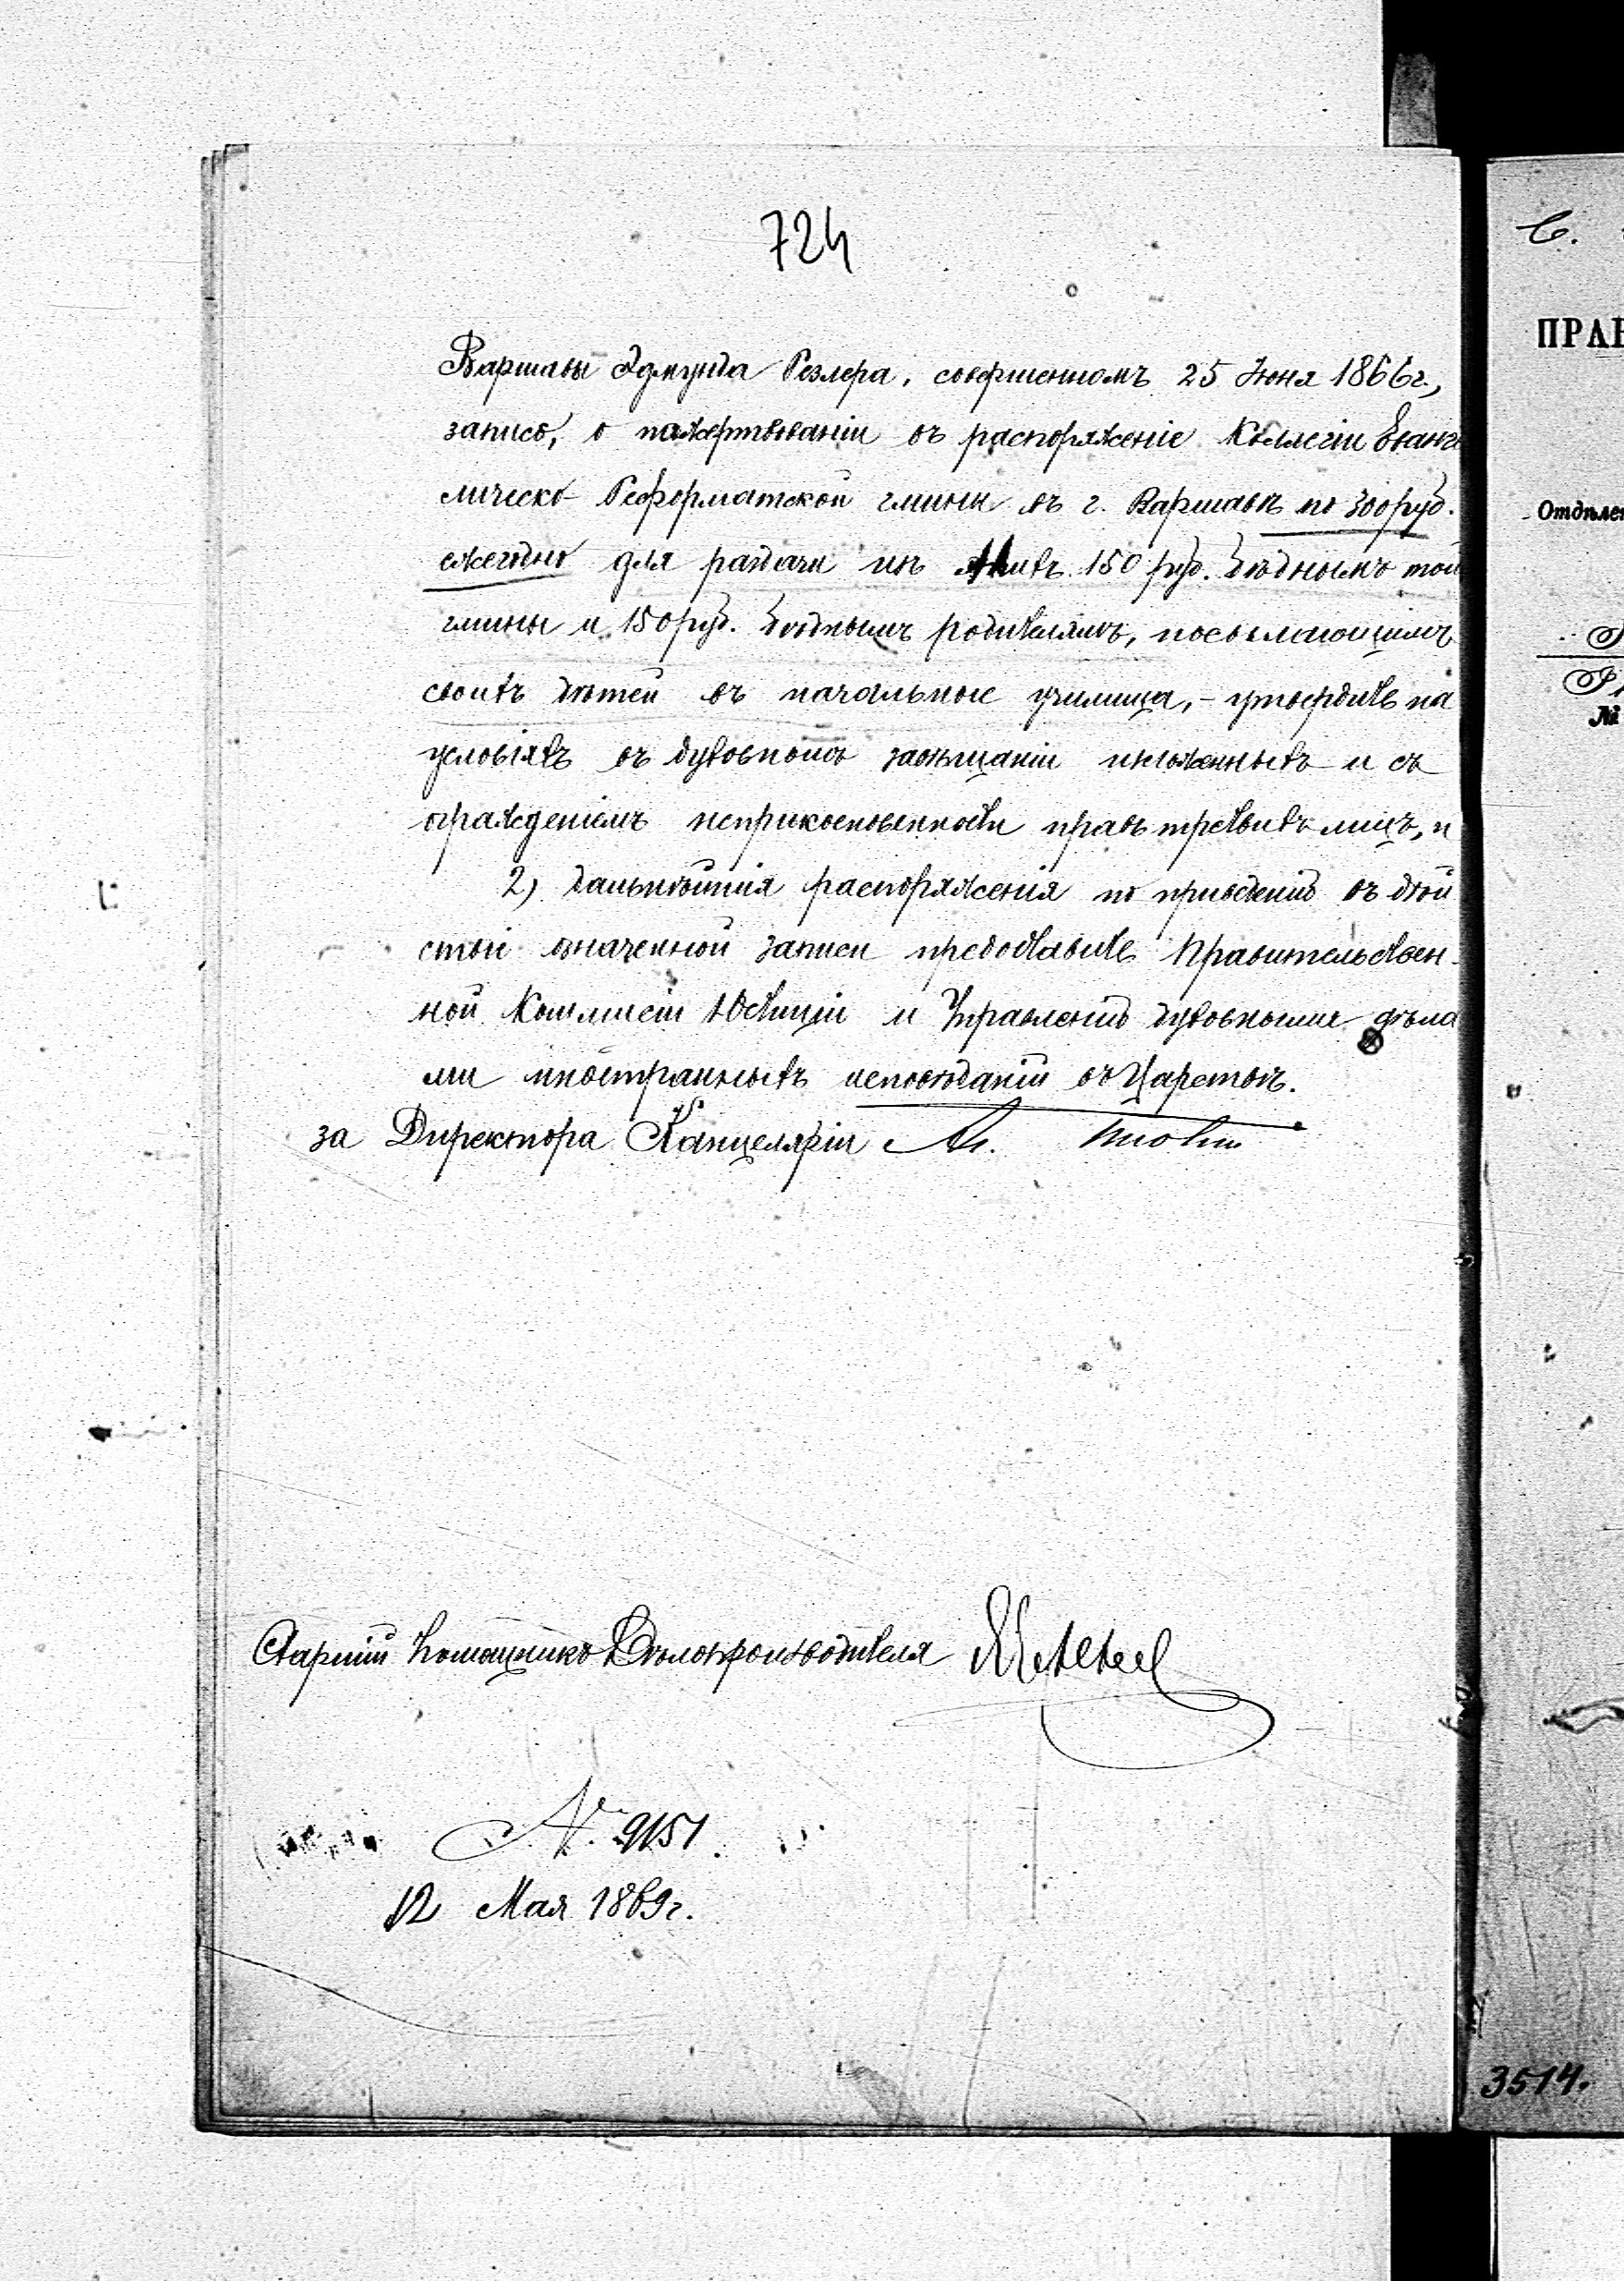 724
Варшавы Эдмунда Резлера, совершенномъ 25 Июня 1866 г.,
запись, о пожертвованіи въ распоряженіе Коллегіи Еванге
лическо-Реформатской гмины въ г. Варшавѣ по 300 руб.
ежегодно для раздачи изъ нихъ 150 руб. бѣднымъ той
гмины и 150 руб. бѣднымъ родителямъ, посылающимъ
своихъ дѣтей въ начальные училища, - утвердить на
условіяхъ въ духовномъ завѣщаніи изложенныхъ и съ
огражденіемъ неприкосновенности правъ третьихъ лицъ, и
2) дальнѣйшія распоряженія по приведенію въ дѣй
ствіе означенной записи предоставить Правительствен-
ной Коммисіи Юстиціи и Управленію духовными дѣла
ми иностранныхъ исповѣданій въ Царствѣ.
за Директора Канцеляріи
Старшій Помощникъ Дѣлопроизводителя
№ 9151.
12 Мая 1869 г.
С.
ПРАВ
Отдѣлен
№
3514.